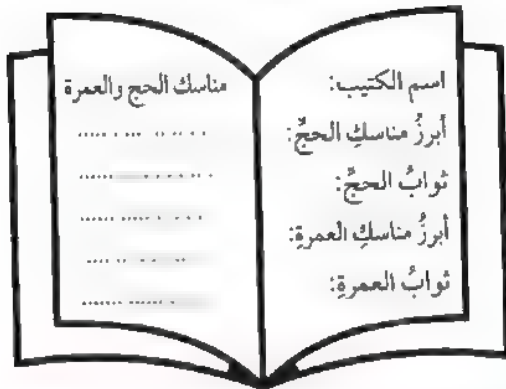 اسم الكتيب:
أبرزُ مناسكِ الحجِّ:
ثوابُ الحجِّ:
أبرزُ مناسكِ العمرةِ:
ثوابُ العمرةِ:
مناسك الحج والعمرة